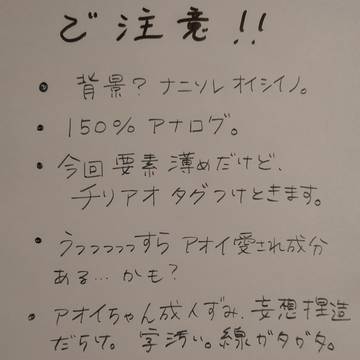 ご注意!!
• 背景? ナニソレ オイシイノ。
• 150% アナログ。
• 今回 要素 薄めだけど、
チリアオ タグつけときます。
• うっっっっっすら アオイ愛され成分
ある… かも?
• アオイちゃん成人ずみ、妄想捏造
だらけ。 字汚い。線ガタガタ。